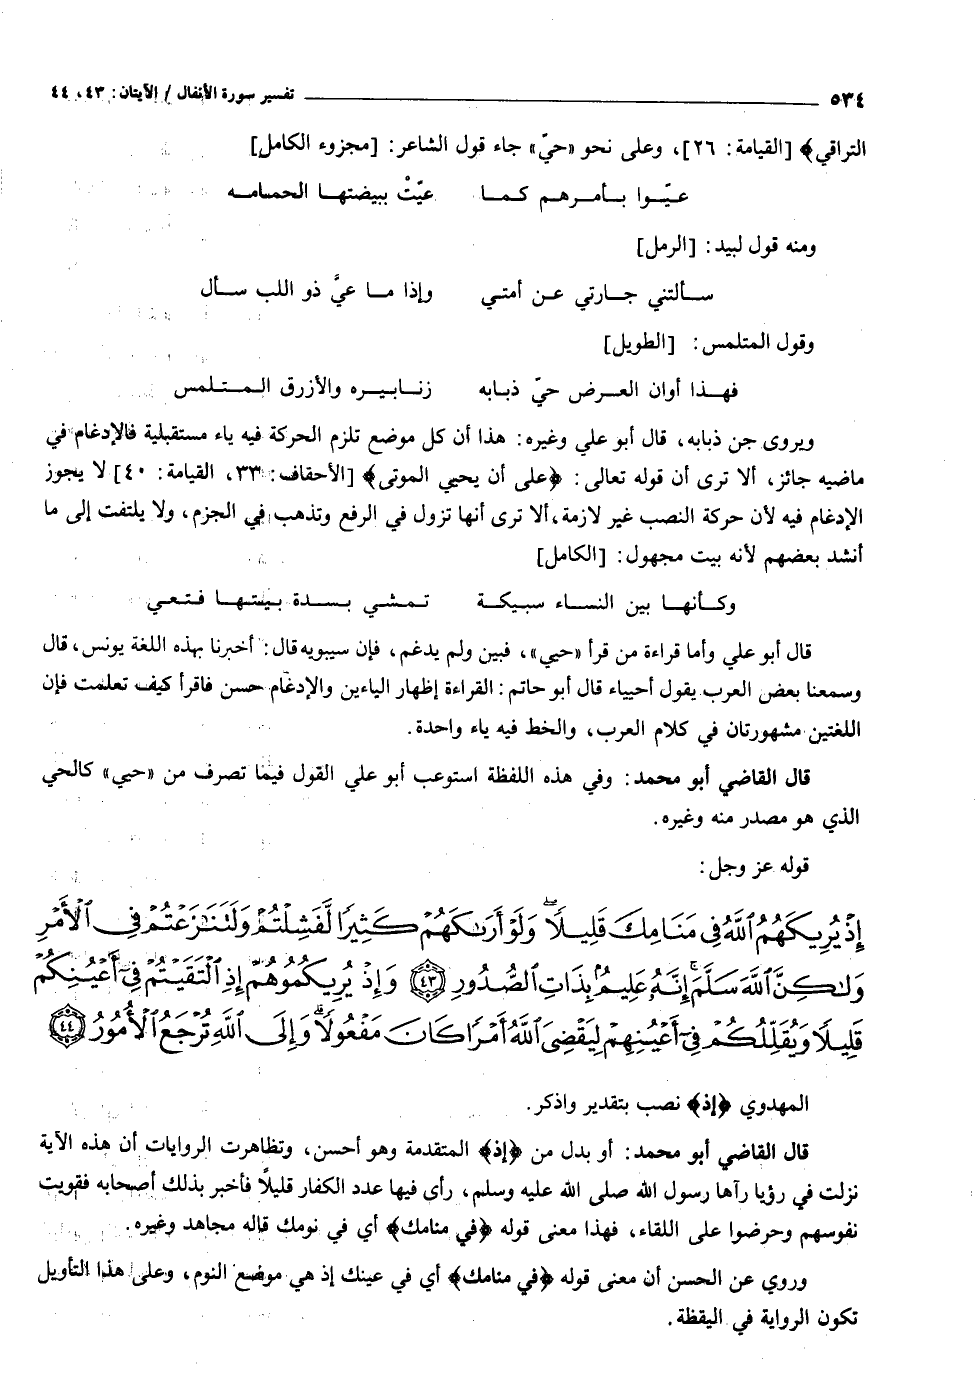 ٥٣٤ تفسير سورة الأنفال / الآيتان: ٤٣، ٤٤
التراقي﴾ [القيامة: ٢٦]، وعلى نحو «حيّ» جاء قول الشاعر: [مجزوء الكامل]
عيّوا بأمرهم كما عيّتْ ببيضتها الحمامه
ومنه قول لبيد: [الرمل]
سألتني جارتي عن أمتي وإذا ما عيَّ ذو اللب سأل
وقول المتلمس: [الطويل]
فهذا أوان العرض حيّ ذبابه زنابيره والأزرق المتلمس
ويروى جن ذبابه، قال أبو علي وغيره: هذا أن كل موضع تلزم الحركة فيه ياء مستقبلية فالإدغام في
ماضيه جائز، ألا ترى أن قوله تعالى: ﴿على أن يحيي الموتى﴾ [الأحقاف: ٣٣، القيامة: ٤٠] لا يجوز
الإدغام فيه لأن حركة النصب غير لازمة، ألا ترى أنها تزول في الرفع وتذهب في الجزم، ولا يلتفت إلى ما
أنشد بعضهم لأنه بيت مجهول: [الكامل]
وكأنها بين النساء سبيكة تمشي بسدة بيتها فتعي
قال أبو علي وأما قراءة من قرأ «حيي»، فبين ولم يدغم، فإن سيبويه قال: أخبرنا بهذه اللغة يونس، قال
وسمعنا بعض العرب يقول أحيياء قال أبو حاتم: القراءة إظهار الياءين والإدغام حسن فاقرأ كيف تعلمت فإن
اللغتين مشهورتان في كلام العرب، والخط فيه ياء واحدة.
قال القاضي أبو محمد: وفي هذه اللفظة استوعب أبو علي القول فيما تصرف من «حيي» كالحي
الذي هو مصدر منه وغيره.
قوله عز وجل:
إِذْ يُرِيكَهُمُ ٱللَّهُ فِى مَنَامِكَ قَلِيلًا ۖ وَلَوْ أَرَىٰكَهُمْ كَثِيرًا لَّفَشِلْتُمْ وَلَتَنَٰزَعْتُمْ فِى ٱلْأَمْرِ
وَلَٰكِنَّ ٱللَّهَ سَلَّمَ ۗ إِنَّهُۥ عَلِيمٌۢ بِذَاتِ ٱلصُّدُورِ ﴿٤٣﴾ وَإِذْ يُرِيكُمُوهُمْ إِذِ ٱلْتَقَيْتُمْ فِىٓ أَعْيُنِكُمْ
قَلِيلًا وَيُقَلِّلُكُمْ فِىٓ أَعْيُنِهِمْ لِيَقْضِىَ ٱللَّهُ أَمْرًا كَانَ مَفْعُولًا ۗ وَإِلَى ٱللَّهِ تُرْجَعُ ٱلْأُمُورُ ﴿٤٤﴾
المهدوي ﴿إذ﴾ نصب بتقدير واذكر.
قال القاضي أبو محمد: أو بدل من ﴿إذ﴾ المتقدمة وهو أحسن، وتظاهرت الروايات أن هذه الآية
نزلت في رؤيا رآها رسول الله صلى الله عليه وسلم، رأى فيها عدد الكفار قليلًا فأخبر بذلك أصحابه فقويت
نفوسهم وحرضوا على اللقاء، فهذا معنى قوله ﴿في منامك﴾ أي في نومك قاله مجاهد وغيره.
وروي عن الحسن أن معنى قوله ﴿في منامك﴾ أي في عينك إذ هي موضع النوم، وعلى هذا التأويل
تكون الرواية في اليقظة.